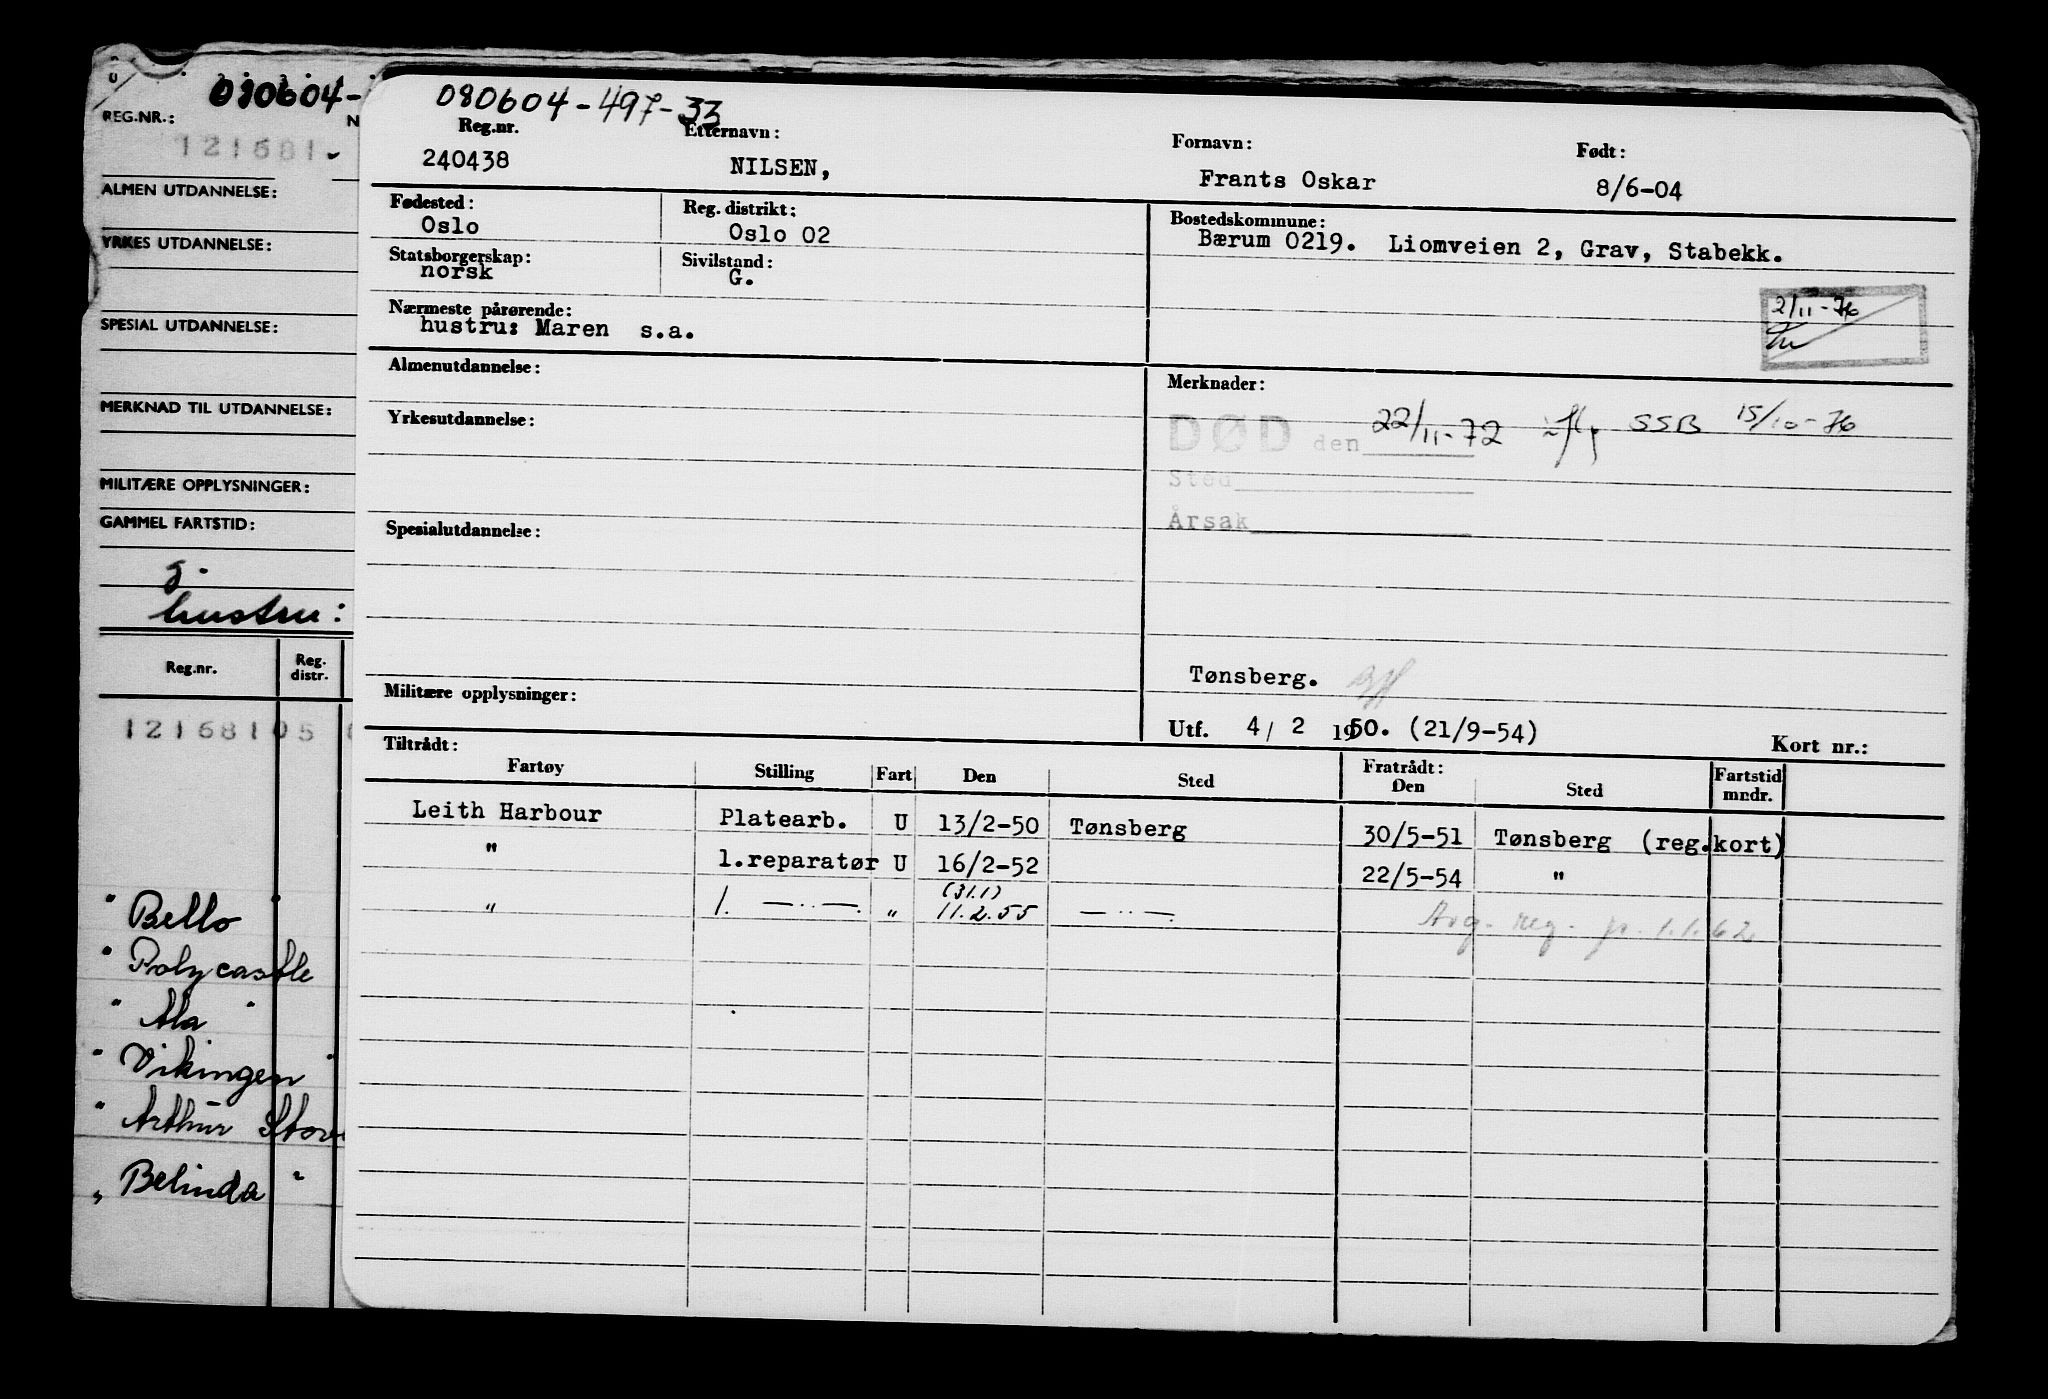 080604-
REG.NR.:
N
121681
ALMEN UTDANNELSE:
YRKES UTDANNELSE:
SPESIAL UTDANNELSE:
MERKNAD TIL UTDANNELSE:
MILITÆRE OPPLYSNINGER:
GAMMEL FARTSTID:
g.
hustru:
Reg.nr. Reg. distr.
12168105
" Bello "
" Polycastle
" Ala "
" Vikingen "
" Arthur Stove
" Belinda "
080604-497-33
Reg.nr. Etternavn: Fornavn: Født:
240438 NILSEN, Frants Oskar 8/6-04
Fødested: Reg. distrikt: Bostedskommune:
Oslo Oslo 02 Bærum 0219. Liomveien 2, Grav, Stabekk.
Statsborgerskap: Sivilstand:
norsk G.
Nærmeste pårørende: 2/11-76
hustru: Maren s.a.
Almenutdannelse: Merknader:
Yrkesutdannelse: DØD den 22/11-72 SSB 15/10-76
Sted
Spesialutdannelse: Årsak
Tønsberg.
Militære opplysninger:
Utf. 4/ 2 1950. (21/9-54) Kort nr.:
Tiltrådt: Fratrådt:
Fartøy Stilling Fart Den Sted Den Sted Fartstid mndr.
Leith Harbour Platearb. U 13/2-50 Tønsberg 30/5-51 Tønsberg (reg.kort)
" 1.reparatør U 16/2-52 22/5-54 "
(31.1)
" 1. —..—. " 11.2.55 —..—.
Avg. reg. pr. 1.1.62